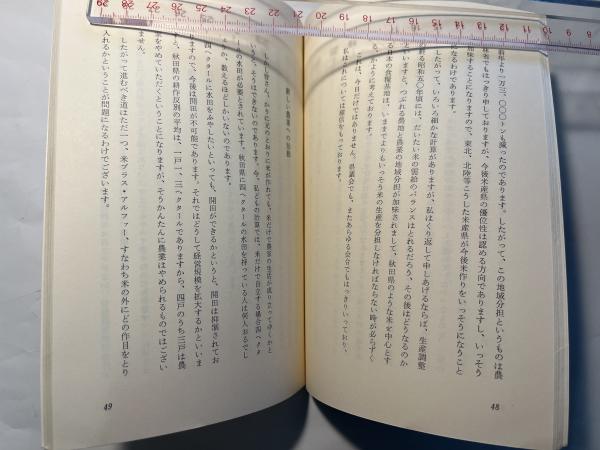 前年より一万三、〇〇〇トンも減ったのであります。したがって、この地域分担というものは農
政省でもはっきり申しておりますが、今後米産県の優位性は認める方向でありますし、いっそう
することになりますので、東北、北陸等こうした米産県が今後米作りをいっそうになうこと
なるわけであります。
したがって、いろいろ細かな計算がありますが、私はくり返して申しあげるならば、生産調整
終る昭和五〇年頃には、だいたい米の需給のバランスはとれるだろう、その後はどうなるのか
いいますと、つぶれる農地と農業の地域分担が加味されまして、秋田県のような米を中心とす
日本の食糧基地は、いままでよりもいっそう米の生産を分担しなければならない時が必らずく
、かように考えております。
私はこれについては確信をもっております。
今日だけではありません。県議会でも、またあらゆる会合でもはっきりいっており、
新しい農業への始動
しからば皆さん、かりに元のとおりに米が作れても、米だけで農家の生活が成り立ってゆくかと
いいますと、そうはできないのであります。今、私どもの計算では、米だけで自立する場合四ヘクタ
ールの水田が必要とされています。秋田県に四ヘクタールの水田を持っている人は何人おるでし
ょうか、数えるほどしかいないのであります。
四ヘクタールに水田をふやしたいといっても、開田ができるかというと、開田は抑制されてお
ますので、今後は開田が不可能であります。それではどうして経営規模を拡大するかといいま
と、秋田県の耕作反別の平均は、一戸一、三ヘクタールでありますから、四戸のうち三戸は農
をやめていただくということになりますが、そうかんたんに農業はやめられるものではござい
ません。
したがって進むべき道はただ一つ、米プラス・アルファー、すなわち米の外にどの作目をとり
入れるかということが問題になるわけでございます。
48
49